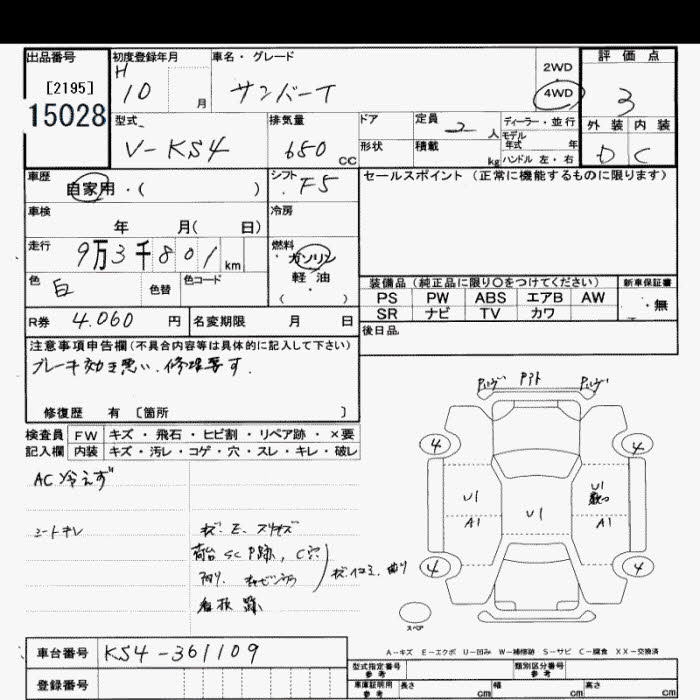 出品番号
[2195]
15028
初度登録年月
H
10 月
車名・グレード
サンバーT
2WD
4WD
評価点
3
外装 内装
D C
型式
V-KS4
排気量
650 CC
ドア
形状
定員 2 人
積載 kg
ディーラー・並行
モデル年式 年
ハンドル 左・右
車歴
自家用・( )
シフト F5
セールスポイント(正常に機能するものに限ります)
車検
年 月( 日)
冷房
走行
9万3千801km
燃料
ガソリン
・
軽・油
( )
色 白
色替
色コード
装備品(純正品に限り〇をつけてください)
新車保証書
PS PW ABS エアB AW
SR ナビ TV カワ
・無
R券 4.060 円
名変期限 月 日
後日品
注意事項申告欄(不具合内容等は具体的に記入して下さい)
ブレーキ効き悪い.修理要す.
修復歴 有 〔箇所 〕
検査員 FW キズ・飛石・ヒビ割・リペア跡・×要
記入欄 内装 キズ・汚レ・コゲ・穴・スレ・キレ・破レ
AC 冷えず
シートキレ
キズ. E. スリキズ
荷台 SC P跡, C穴
看板 跡
4 4
U1 U1 U1
A1 A1
4 4
スペア
A-キズ E-エクボ U-凹み W-補修跡 S-サビ C-腐食 XX-交換済
車台番号 KS4-361109
登録番号
型式指定番号
参考
類別区分番号
参考
車庫証明用
参考
長さ cm
幅 cm
高さ cm